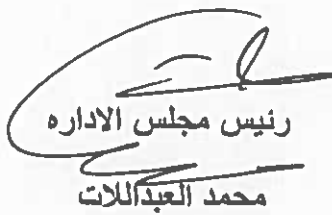 رئيس مجلس الاداره
محمد العبداللات